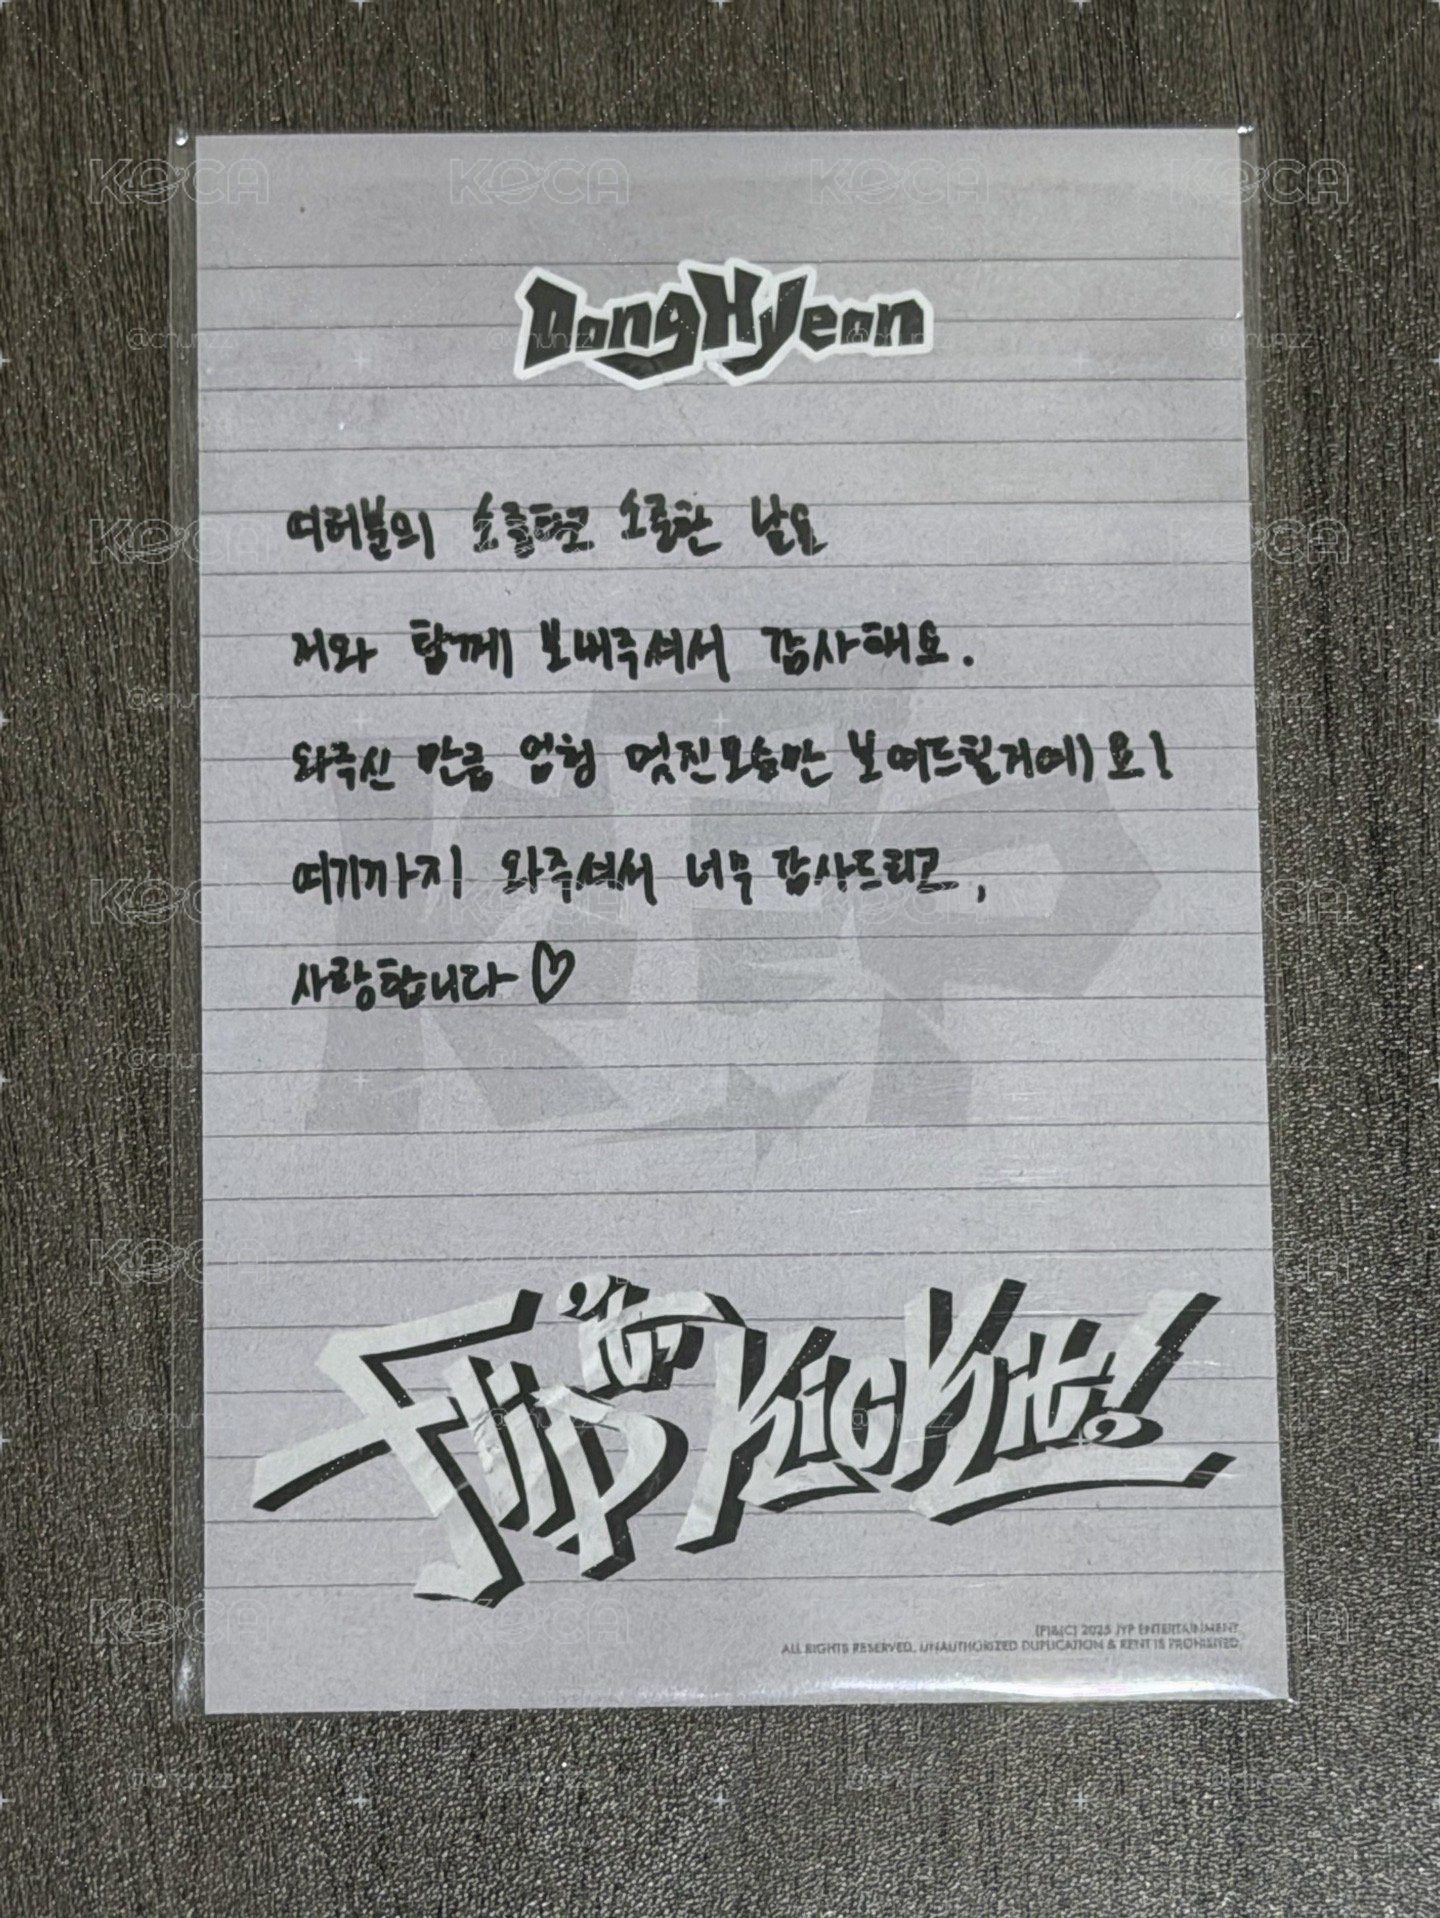 DongHyeon
여러분의 소중하고 소중한 날을
저와 함께 보내주셔서 감사해요.
와주신 만큼 엄청 멋진모습만 보여드릴거예요!
여기까지 와주셔서 너무 감사드리고,
사랑합니다 ♡
KEP
Flip it, Kick it!
(P)&(C) 2025 JYP ENTERTAINMENT.
ALL RIGHTS RESERVED. UNAUTHORIZED DUPLICATION & RENT IS PROHIBITED.
KOCA
@chunzz